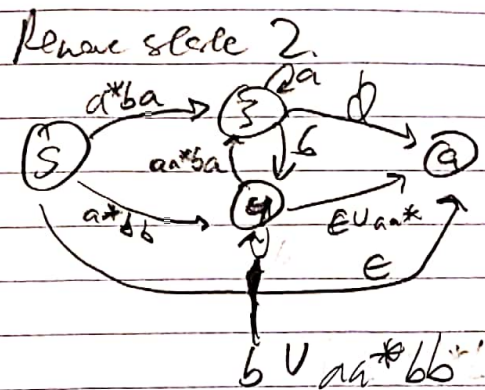 Remove state 2.
a
a*ba
3
ϕ
S
aa*ba
b
a
4
a*bb
E∪aa*
ϵ
b ∪ aa*bb